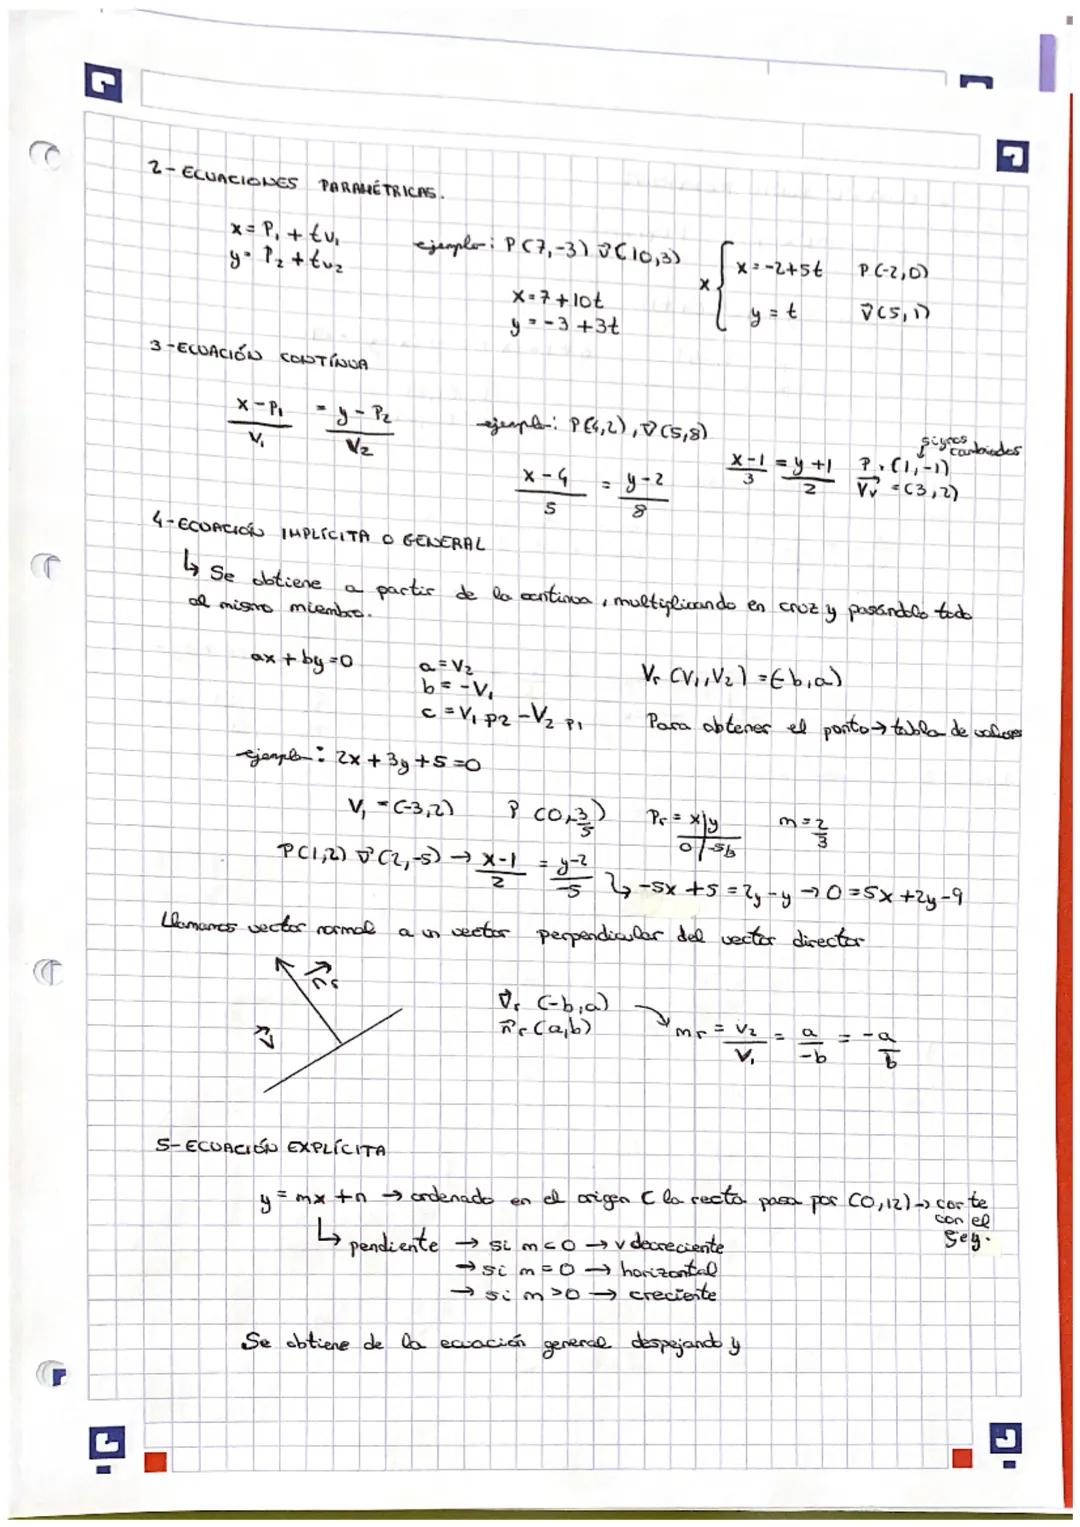 2- ECUACIONES PARAMÉTRICAS.
x = P₁ + tv₁
y = P₂ + tv₂
ejemplo: P(7,-3) v⃗(10,3)
x = 7 + 10t
y = -3 + 3t
x { x = -2+5t P(-2,0)
y = t v⃗(5,1)
3- ECUACIÓN CONTÍNUA
x-P₁/V₁ = y-P₂/V₂
ejemplo: P(4,2), v⃗(5,8)
x-4/5 = y-2/8
x-1/3 = y+1/2
signos cambiados
Pᵣ(1,-1)
Vᵣ = (3,2)
4- ECUACIÓN IMPLÍCITA O GENERAL
↳ Se obtiene a partir de la contínua, multiplicando en cruz y pasándolo todo
al mismo miembro.
ax + by = 0
a = V₂
b = -V₁
c = V₁ p₂ - V₂ p₁
Vᵣ (V₁, V₂) = (-b, a)
Para obtener el punto → tabla de valores
ejemplo: 2x + 3y + 5 = 0
V₁ = (-3,2) P (0,-3/5) Pᵣ = x|y m = 2/3
0|-5/3
P(1,2) v⃗(2,-5) → x-1/2 = y-2/-5
↳ -5x + 5 = 2y - y → 0 = 5x + 2y - 9
Llamamos vector normal a un vector perpendicular del vector director
n⃗ᵣ
v⃗
v⃗ᵣ (-b,a)
n⃗ᵣ (a,b)
mᵣ = V₂/V₁ = a/-b = -a/b
5- ECUACIÓN EXPLÍCITA
y = mx + n → ordenado en el origen ( la recta pasa por (0,12) → corte
con el
Sey.
↳ pendiente → si m < 0 → v decreciente
→ si m = 0 → horizontal
→ si m > 0 → creciente
Se obtiene de la ecuación general despejando y